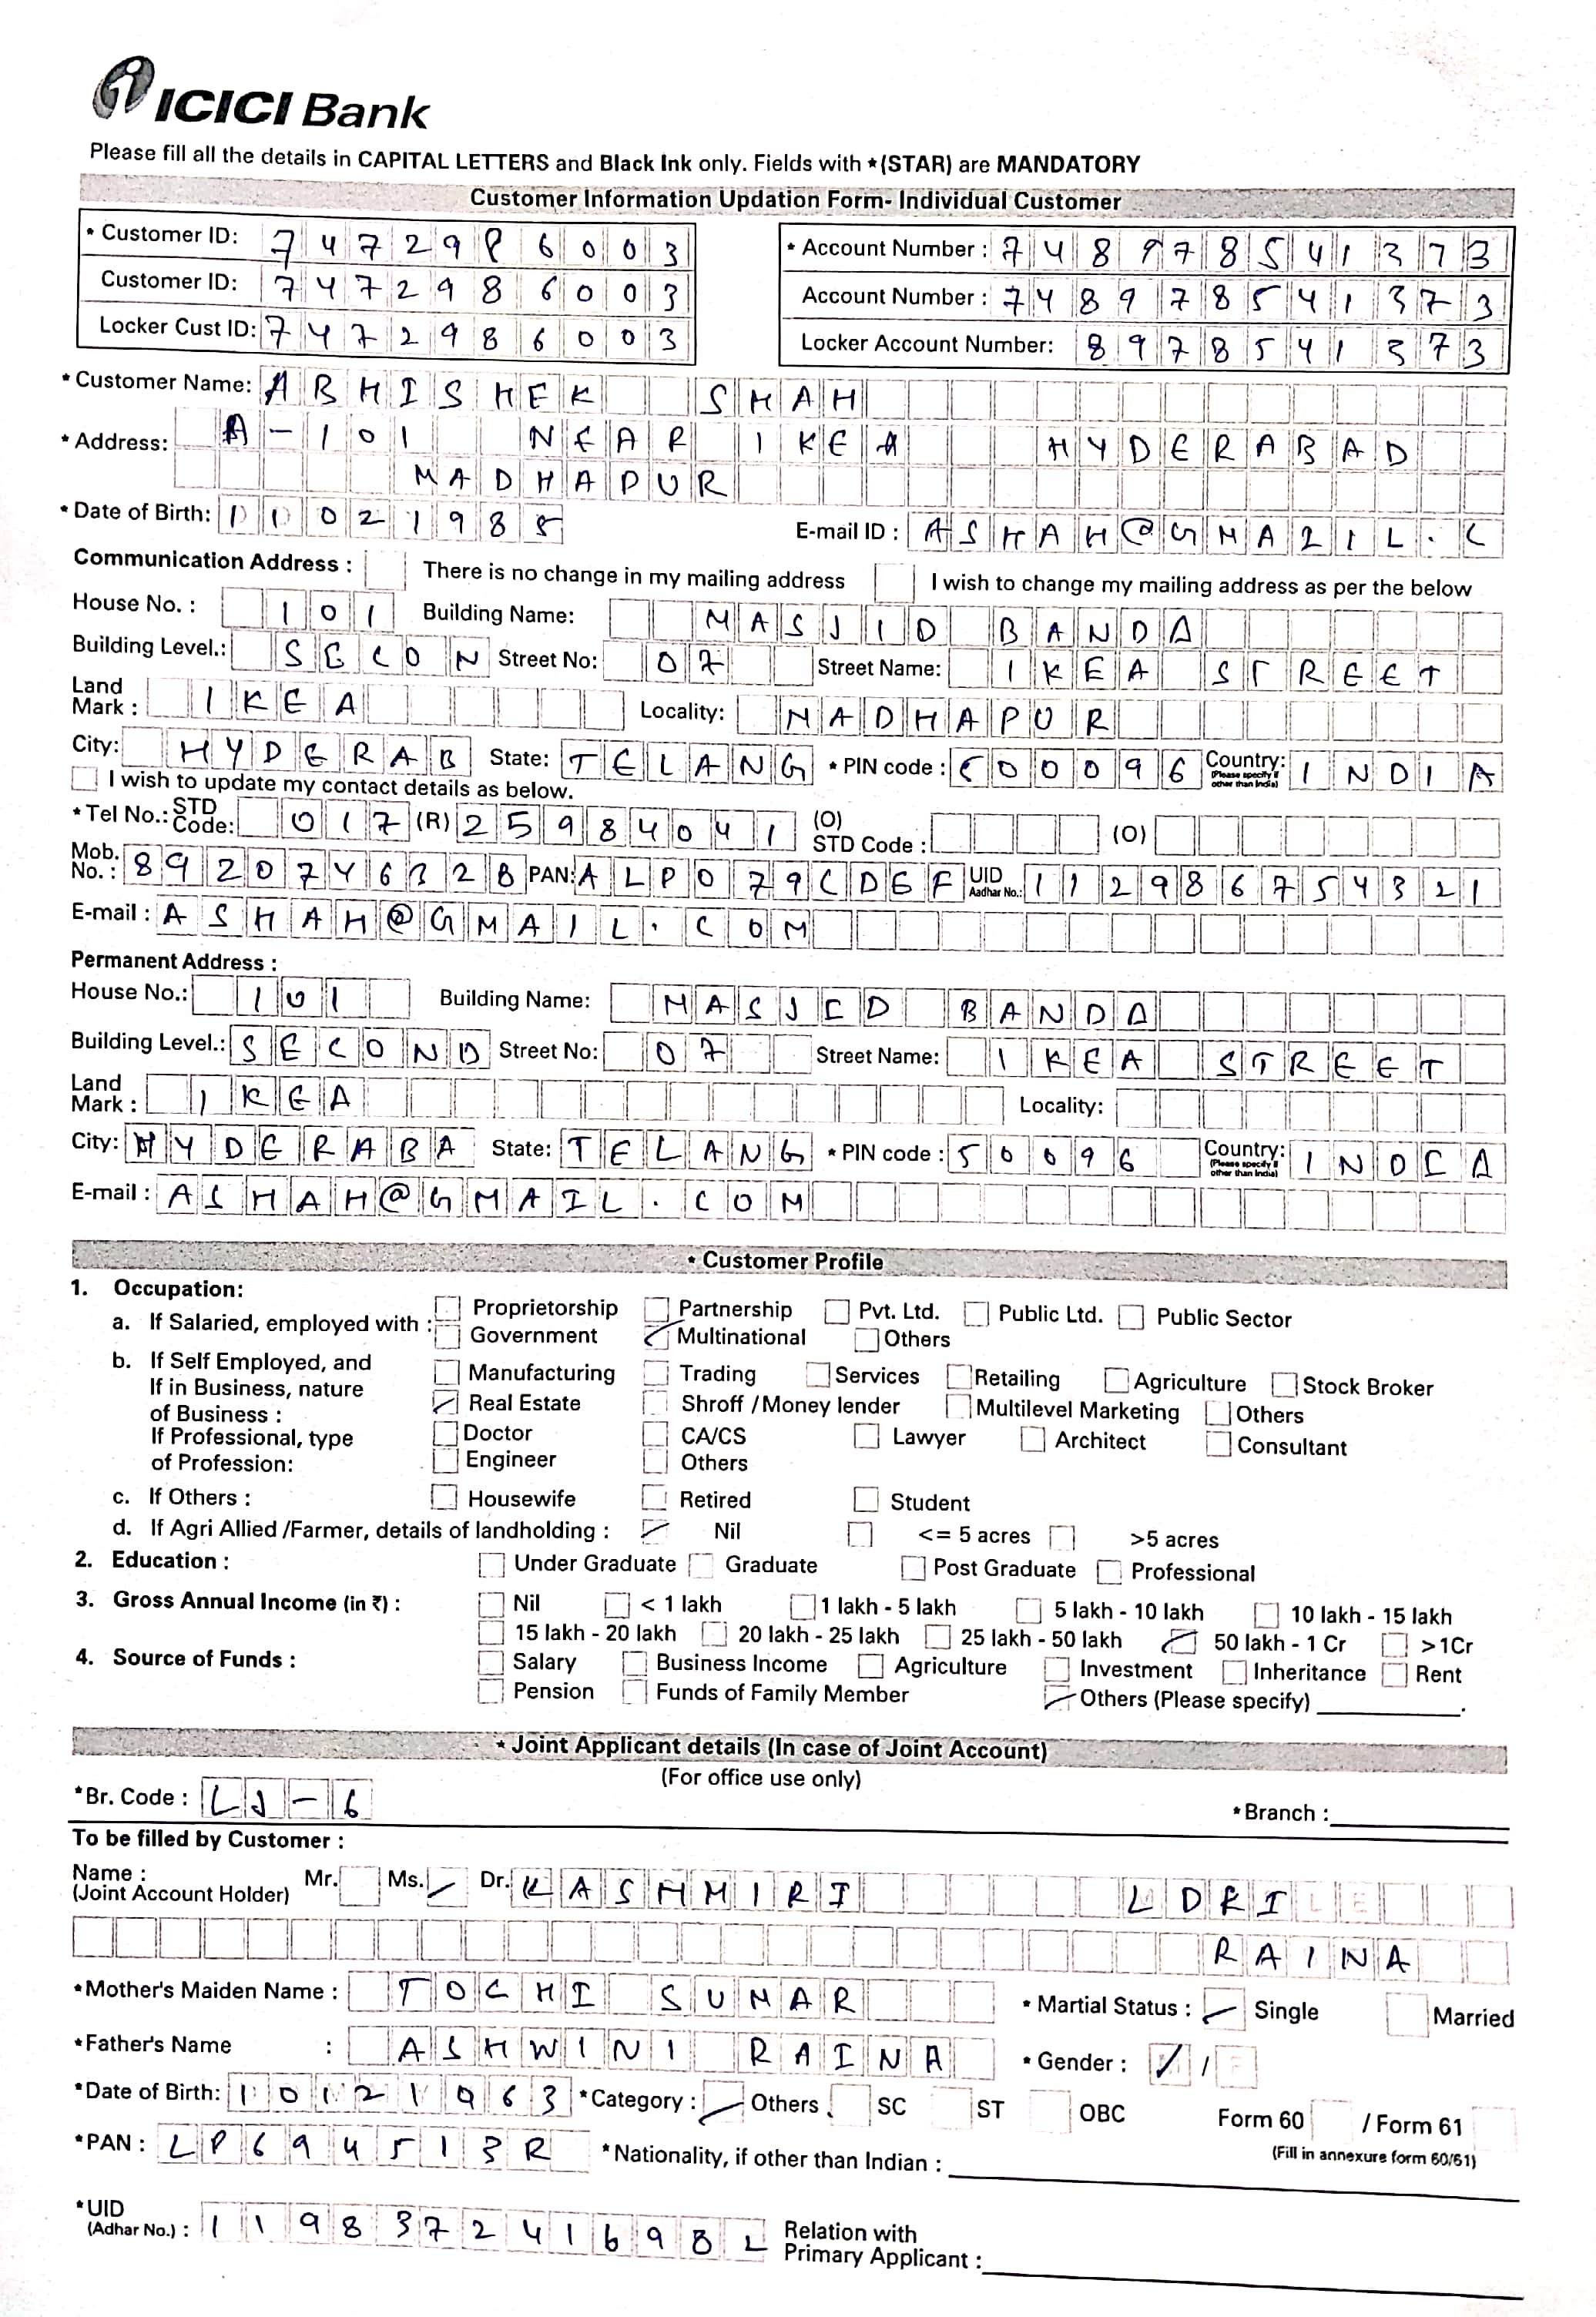 ICICI Bank
Please fill all the details in CAPITAL LETTERS and Black Ink only. Fields with *(STAR) are MANDATORY
Customer Information Updation Form- Individual Customer
* Customer ID: 7472986003 * Account Number : 748978541373
Customer ID: 7472986003 Account Number : 748978541373
Locker Cust ID: 7472986003 Locker Account Number: 8978541373
* Customer Name: ABHISHEK SHAH
* Address: A-101 NEAR IKEA HYDERABAD
MADHAPUR
* Date of Birth: 11021985 E-mail ID : ASHAH@GMAIL.C
Communication Address : There is no change in my mailing address I wish to change my mailing address as per the below
House No. : 101 Building Name: MASJID BANDA
Building Level.: SECON Street No: 07 Street Name: IKEA STREET
Land Mark : IKEA Locality: MADHAPUR
City: HYDERAB State: TELANG * PIN code : 500096 Country: (Please specify if other than India) INDIA
I wish to update my contact details as below.
* Tel No.: STD Code: 017 (R) 25984041 (O) STD Code : (O)
Mob. No. : 8920746328 PAN: ALP079CDEF UID Aadhar No.: 112986754321
E-mail : ASHAH@GMAIL.COM
Permanent Address :
House No.: 101 Building Name: MASJID BANDA
Building Level.: SECOND Street No: 07 Street Name: IKEA STREET
Land Mark : IKEA Locality:
City: HYDERABA State: TELANG * PIN code : 50096 Country: (Please specify if other than India) INDIA
E-mail : ASHAH@GMAIL.COM
* Customer Profile
1. Occupation:
a. If Salaried, employed with : Proprietorship Partnership Pvt. Ltd. Public Ltd. Public Sector
Government Multinational Others
b. If Self Employed, and If in Business, nature of Business : Manufacturing Trading Services Retailing Agriculture Stock Broker
Real Estate Shroff /Money lender Multilevel Marketing Others
If Professional, type of Profession: Doctor CA/CS Lawyer Architect Consultant
Engineer Others
c. If Others : Housewife Retired Student
d. If Agri Allied /Farmer, details of landholding : Nil <= 5 acres >5 acres
2. Education : Under Graduate Graduate Post Graduate Professional
3. Gross Annual Income (in ₹) : Nil < 1 lakh 1 lakh - 5 lakh 5 lakh - 10 lakh 10 lakh - 15 lakh
15 lakh - 20 lakh 20 lakh - 25 lakh 25 lakh - 50 lakh 50 lakh - 1 Cr >1Cr
4. Source of Funds : Salary Business Income Agriculture Investment Inheritance Rent
Pension Funds of Family Member Others (Please specify)
* Joint Applicant details (In case of Joint Account)
(For office use only)
*Br. Code : LJ-6 *Branch :
To be filled by Customer :
Name : (Joint Account Holder) Mr. Ms. Dr. KASHMIRI
RAINA
*Mother's Maiden Name : TOCHI SUMAR * Martial Status : Single Married
*Father's Name : ASHWINI RAINA * Gender : M / F
*Date of Birth: 10121963 *Category : Others SC ST OBC Form 60 / Form 61
*PAN : LP694513R *Nationality, if other than Indian : (Fill in annexure form 60/61)
*UID (Adhar No.) : 119837241698 Relation with Primary Applicant :